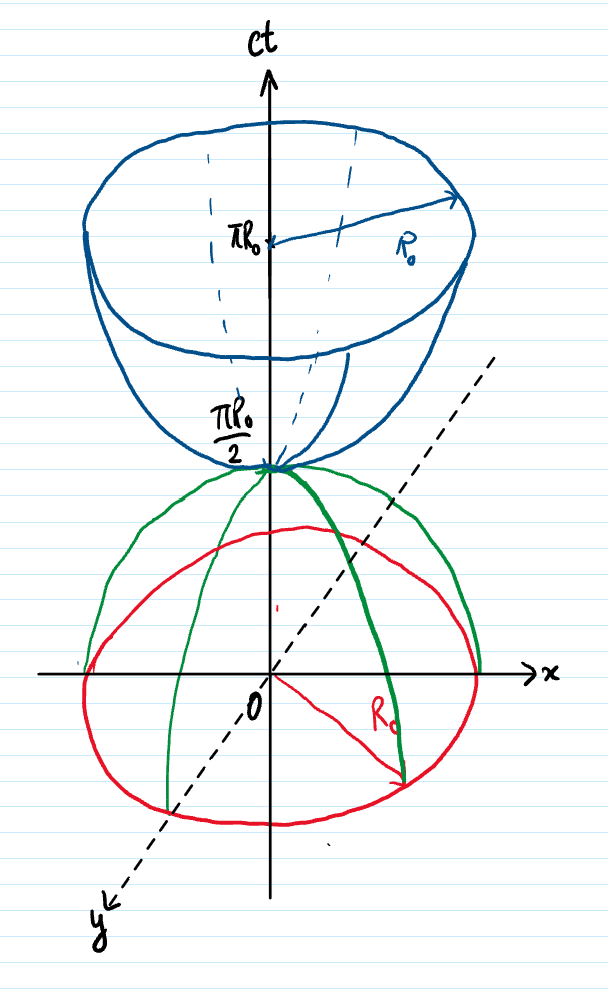 ct
πR₀
R₀
πR₀
2
x
O
R₀
y